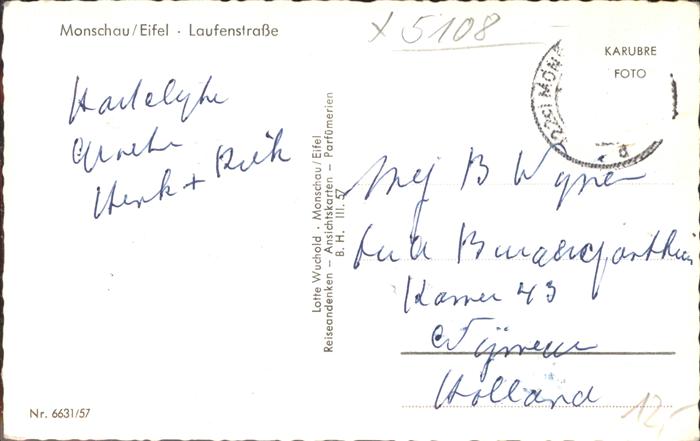 Monschau/Eifel · Laufenstraße
x 5108
KARUBRE
FOTO
Hartelijke
Groeten
Henk + Riek
Lotte Wuchold · Monschau/Eifel
Reiseandenken – Ansichtskarten – Parfümerien
B. H. III. 57
Mej B
Kamer 43
Nijmegen
Holland
Nr. 6631/57
12,-